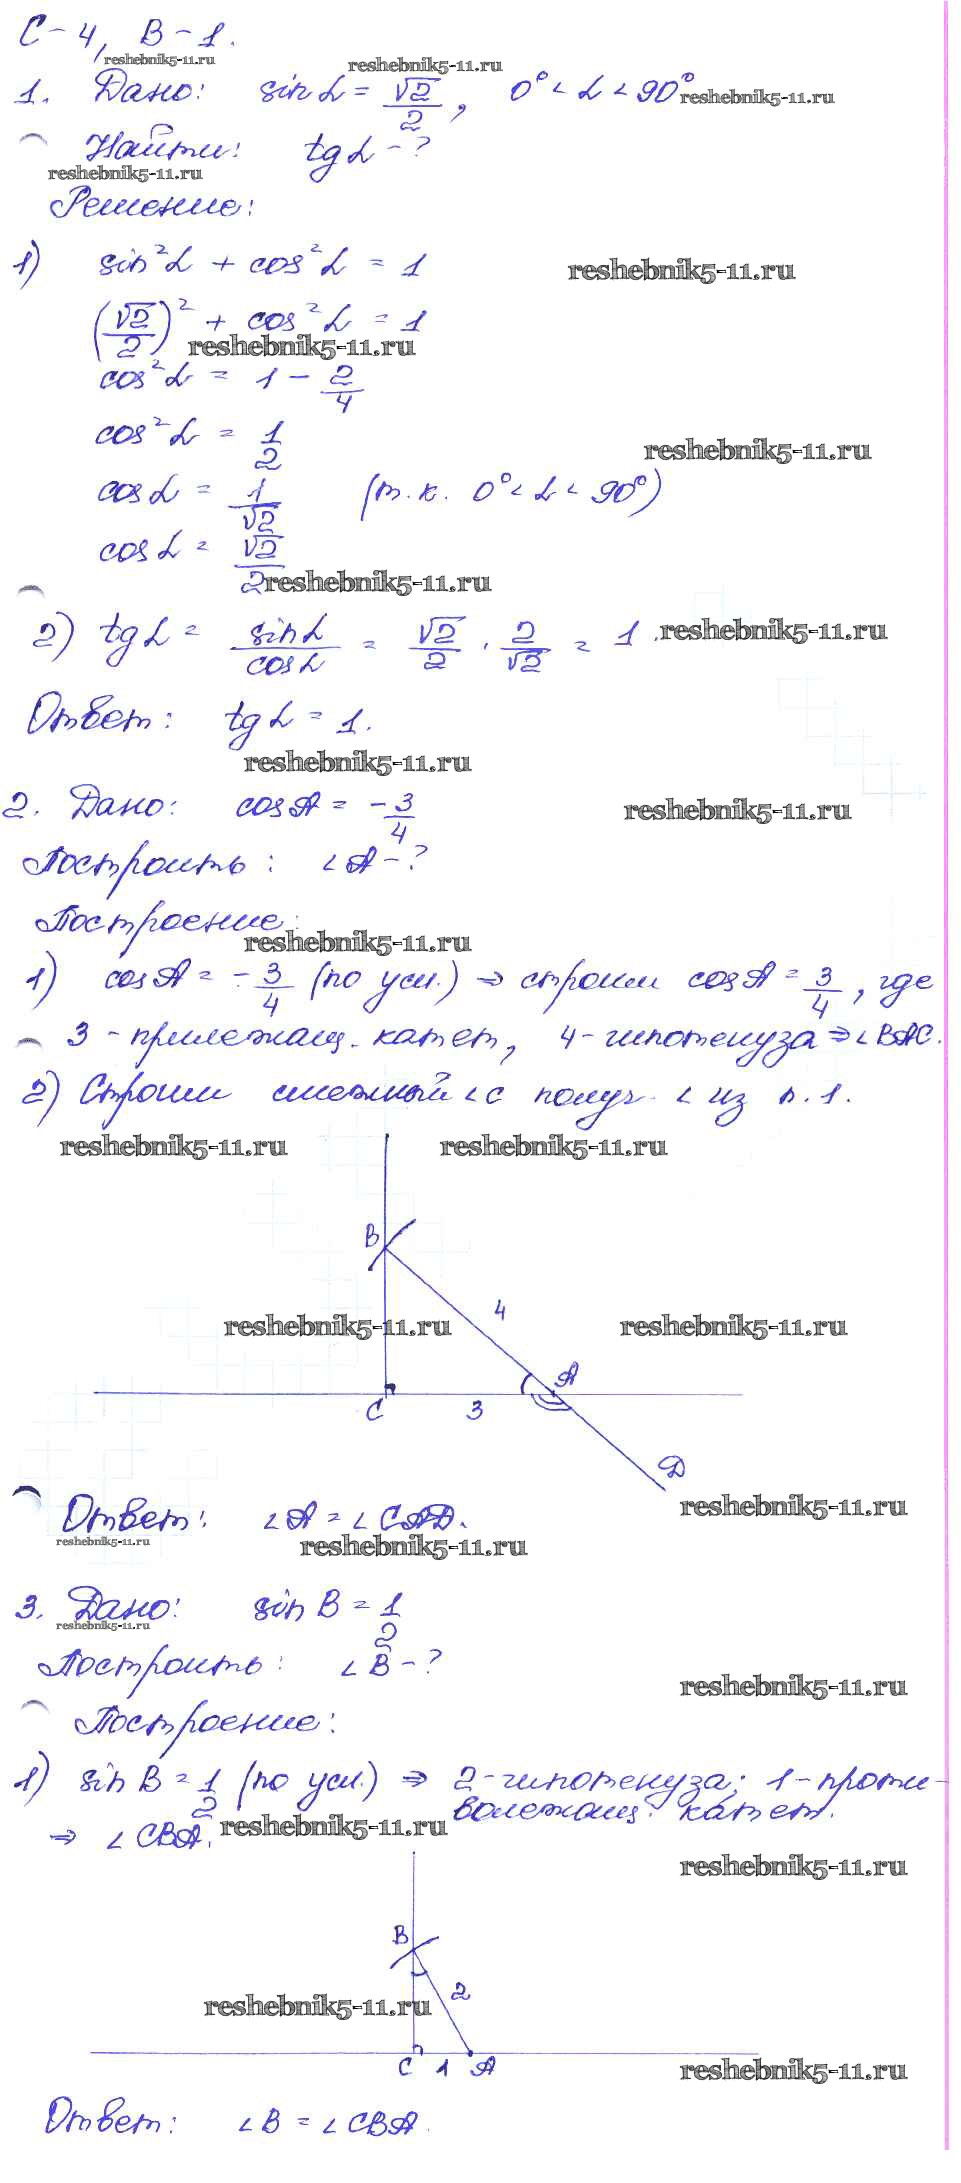 С-4, В-1.
reshebnik5-11.ru
reshebnik5-11.ru
1. Дано: sin α = √2/2, 0° < α < 90°
reshebnik5-11.ru
Найти: tg α - ?
reshebnik5-11.ru
Решение:
1) sin²α + cos²α = 1
reshebnik5-11.ru
(√2/2)² + cos²α = 1
reshebnik5-11.ru
cos²α = 1 - 2/4
cos²α = 1/2
reshebnik5-11.ru
cos α = 1/√2 (т.к. 0° < α < 90°)
cos α = √2/2
reshebnik5-11.ru
2) tg α = sin α/cos α = √2/2 · 2/√2 = 1.
reshebnik5-11.ru
Ответ: tg α = 1.
reshebnik5-11.ru
2. Дано: cos A = -3/4
reshebnik5-11.ru
Построить: ∠A - ?
Построение:
reshebnik5-11.ru
1) cos A = -3/4 (по усл.) ⇒ строим cos A = 3/4, где
3 - прилежащ. катет, 4 - гипотенуза ⇒ ∠BAC.
2) Строим смежный ∠ с получ. ∠ из п. 1.
reshebnik5-11.ru reshebnik5-11.ru
B
4
reshebnik5-11.ru reshebnik5-11.ru
A
C 3
D
reshebnik5-11.ru
Ответ: ∠A = ∠CAD.
reshebnik5-11.ru
reshebnik5-11.ru
3. Дано: sin B = 1/2
reshebnik5-11.ru
Построить: ∠B - ?
reshebnik5-11.ru
Построение:
1) sin B = 1/2 (по усл.) ⇒ 2 - гипотенуза; 1 - проти-
волежащ. катет.
⇒ ∠CBA.
reshebnik5-11.ru
reshebnik5-11.ru
B
2
reshebnik5-11.ru
C 1 A
reshebnik5-11.ru
Ответ: ∠B = ∠CBA.